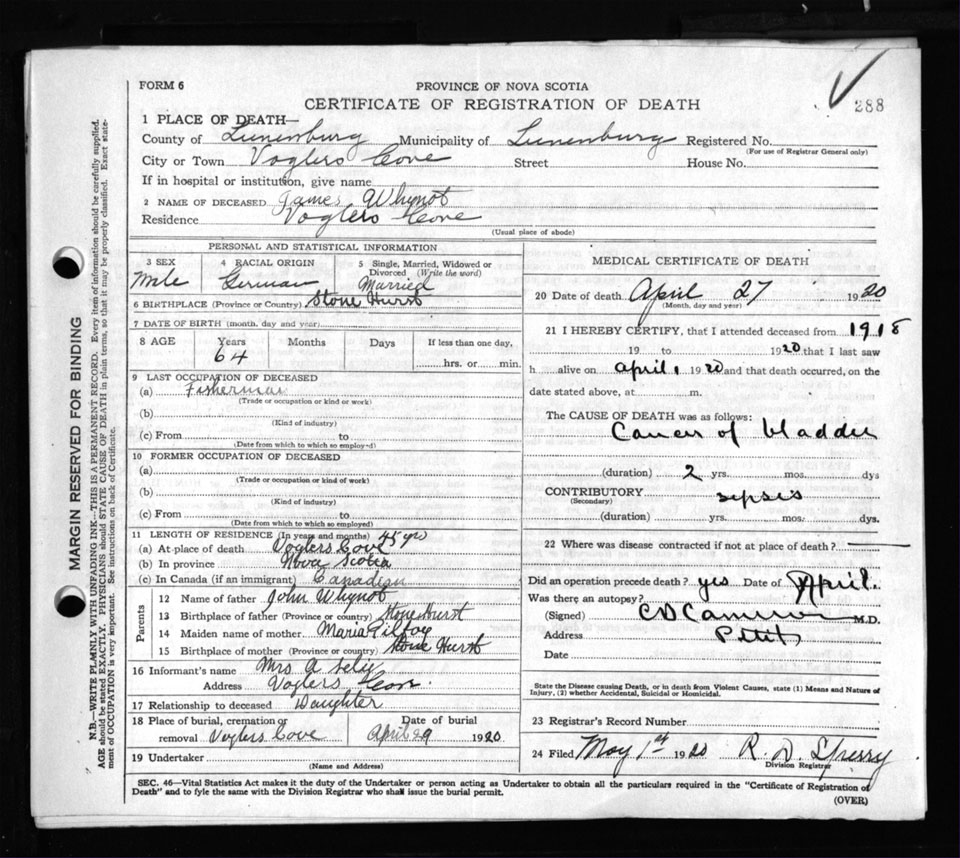 FORM 6
PROVINCE OF NOVA SCOTIA
CERTIFICATE OF REGISTRATION OF DEATH
288
1 PLACE OF DEATH—
County of Lunenburg Municipality of Lunenburg Registered No.
(For use of Registrar General only)
City or Town Voglers Cove Street House No.
If in hospital or institution, give name
2 NAME OF DECEASED James Whynot
Residence Voglers Cove
(Usual place of abode)
PERSONAL AND STATISTICAL INFORMATION
3 SEX Male
4 RACIAL ORIGIN German
5 Single, Married, Widowed or Divorced (Write the word) Married
6 BIRTHPLACE (Province or Country) Stone Hurst
7 DATE OF BIRTH (month, day and year)
8 AGE Years 64 Months Days If less than one day, hrs. or min.
9 LAST OCCUPATION OF DECEASED
(a) Fisherman
(Trade or occupation or kind or work)
(b)
(Kind of industry)
(c) From to
(Date from which to which so employed)
10 FORMER OCCUPATION OF DECEASED
(a)
(Trade or occupation or kind of work)
(b)
(Kind of industry)
(c) From to
(Date from which to which so employed)
11 LENGTH OF RESIDENCE (In years and months) 45 yrs
(a) At place of death Voglers Cove
(b) In province Nova Scotia
(c) In Canada (if an immigrant) Canadian
Parents
12 Name of father John Whynot
13 Birthplace of father (Province or country) Stone Hurst
14 Maiden name of mother Maria
15 Birthplace of mother (Province or country) Stone Hurst
16 Informant's name Mrs A
Address Voglers Cove
17 Relationship to deceased Daughter
18 Place of burial, cremation or removal Voglers Cove
Date of burial April 29 1920
19 Undertaker
(Name and Address)
MEDICAL CERTIFICATE OF DEATH
20 Date of death April 27 1920
(Month, day and year)
21 I HEREBY CERTIFY, that I attended deceased from 1918
19 to 1920 that I last saw
h alive on April, 1920 and that death occurred, on the
date stated above, at m.
The CAUSE OF DEATH was as follows:
Cancer of bladder
(duration) 2 yrs. mos. dys
CONTRIBUTORY sepsis
(Secondary)
(duration) yrs. mos. dys.
22 Where was disease contracted if not at place of death?
Did an operation precede death? yes Date of April.
Was there an autopsy?
(Signed) C D Cameron M.D.
Address
Date
State the Disease causing Death, or in death from Violent Causes, state (1) Means and Nature of
Injury, (2) whether Accidental, Suicidal or Homicidal.
23 Registrar's Record Number
24 Filed May 1st 1920 R. D. Sperry
Division Registrar
SEC. 46—Vital Statistics Act makes it the duty of the Undertaker or person acting as Undertaker to obtain all the particulars required in the "Certificate of Registration of
Death" and to fyle the same with the Division Registrar who shall issue the burial permit.
(OVER)
MARGIN RESERVED FOR BINDING
N.B.—WRITE PLAINLY WITH UNFADING INK—THIS IS A PERMANENT RECORD. Every item of information should be carefully supplied.
AGE should be stated EXACTLY. PHYSICIANS should STATE CAUSE OF DEATH in plain terms, so that it may be properly classified. Exact state-
ment of OCCUPATION is very important. See instructions on back of Certificate.